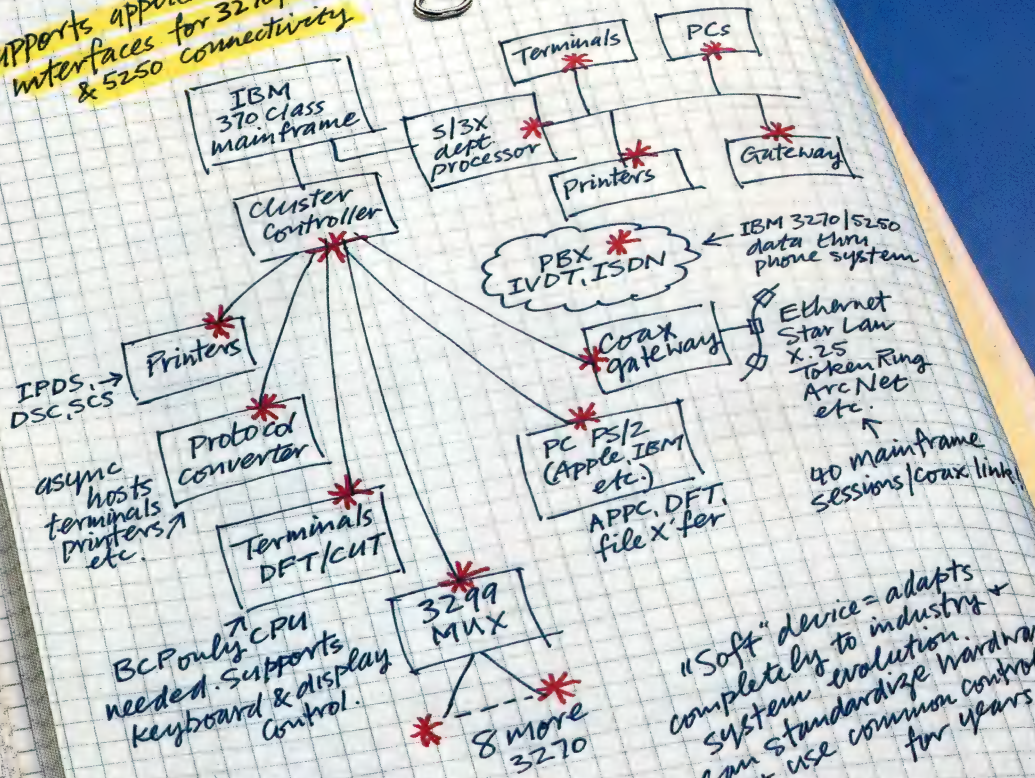 interfaces for
& 5250 connectivity
IBM
370 Class
mainframe
S/3X
dept
processor
Terminals
PCs
Printers
Gateway
Cluster
Controller
PBX
IVDT, ISDN
IBM 3270/5250
data thru
phone system
Printers
IPDS,
DSC, SCS
Coax
gateway
Ethernet
Star Lan
X.25
Token Ring
Arc Net
etc.
40 mainframe
sessions/coax link!
Protocol
Converter
async
hosts
terminals
printers
etc.
PC PS/2
(Apple, IBM
etc.)
APPC, DFT,
file X'fer
Terminals
DFT/CUT
BCP only CPU
needed. Supports
keyboard & display
control.
3299
MUX
8 more
3270
"Soft" device = adapts
completely to industry +
system evolution.
standardize
use common
for years